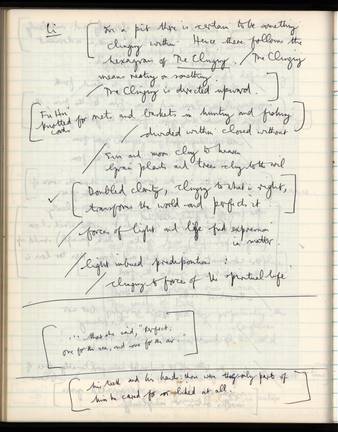 Li
In a pit there is certain to be something
clinging within. Hence there follows the
hexagram of The Clinging. / The Clinging
means resting on something.
/ The Clinging is directed upward.
Fu Hsi
knotted cords for nets and baskets in hunting and fishing
/ divided within closed without
/ Sun and moon cling to heaven
Grain plants and trees cling to the soil
Doubled clarity, clinging to what is right,
transforms the world and perfects it
/ forces of light and life find expression
in matter
/ light imbued predisposition
/ clinging to force of the spiritual life
... that she said, "Perfect,
one for the sea, and one for the air."
his teeth and his hands were the only parts of
him he cared for or liked at all.